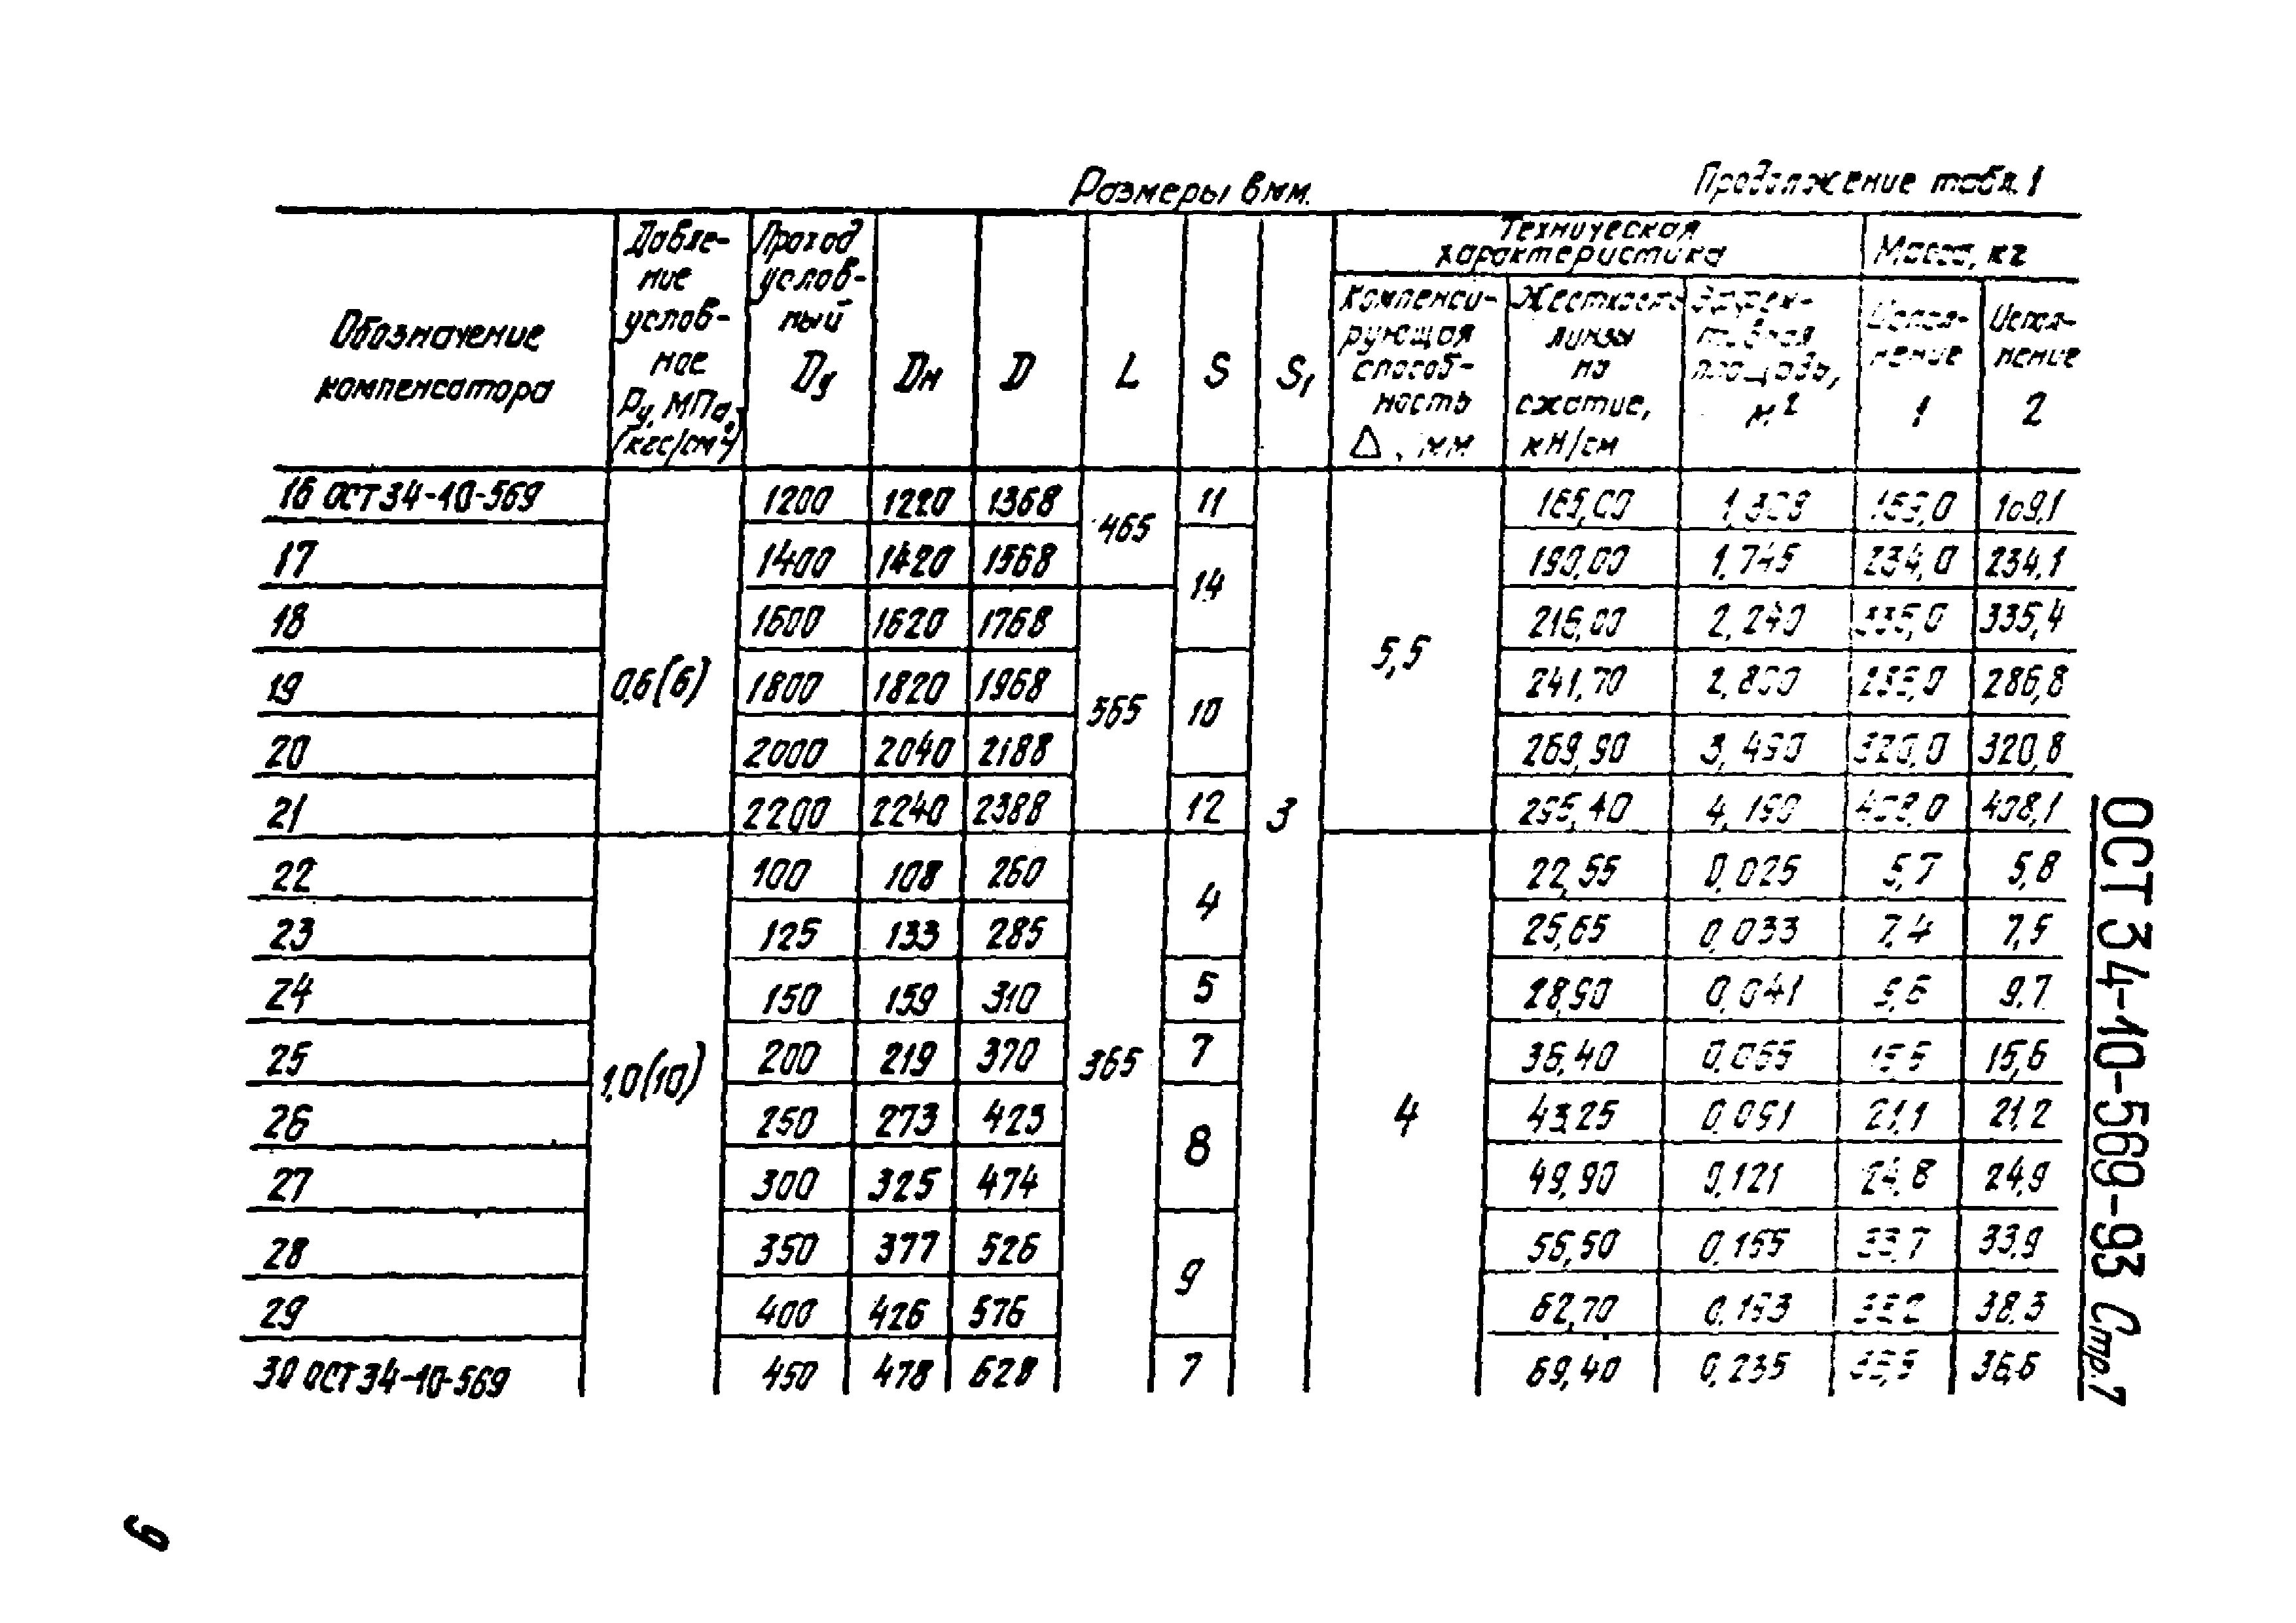 Размеры в мм.
Продолжение табл. 1
Обозначение компенсатора
Давле-
ние
услов-
ное
Ру, МПа,
(кгс/см²)
Проход
услов-
ный
Dу
Dн
D
L
S
S₁
Техническая
характеристика
Компенси-
рующая
способ-
ность
Δ, мм
Жесткость
линзы
на
сжатие,
кН/см
Эффек-
тивная
площадь,
м²
Масса, кг
Испол-
нение
1
Испол-
нение
2
16 ОСТ 34-10-569 0,6(6) 1200 1220 1368 465 11 3 5,5 165,00 109,1
17 1400 1420 1568 14 190,00 1,745 234,0 234,1
18 1600 1620 1768 565 216,00 2,240 335,0 335,4
19 1800 1820 1968 10 241,70 286,8
20 2000 2040 2188 269,90 3,490 320,0 320,8
21 2200 2240 2388 12 295,40 4,190 408,0 408,1
22 1,0(10) 100 108 260 365 4 4 22,55 0,025 5,7 5,8
23 125 133 285 25,65 0,033 7,4 7,5
24 150 159 310 5 28,90 0,041 9,6 9,7
25 200 219 370 7 36,40 0,065 15,6
26 250 273 423 8 43,25 0,091 21,1 21,2
27 300 325 474 49,90 0,121 24,8 24,9
28 350 377 526 9 56,50 33,7 33,9
29 400 426 576 62,70 38,3
30 ОСТ 34-10-569 450 478 628 7 69,40 0,235 36,6
ОСТ 34-10-569-93 Стр. 7
9